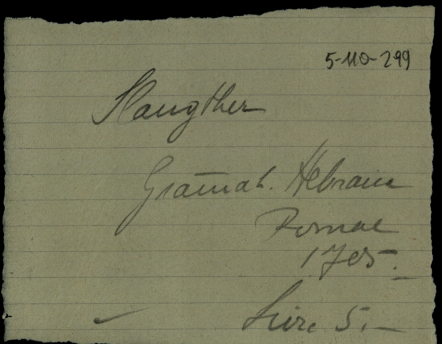 5-110-299
Slaugther
Gramat. Hebraica
Romae
1705.
Lire 5.-